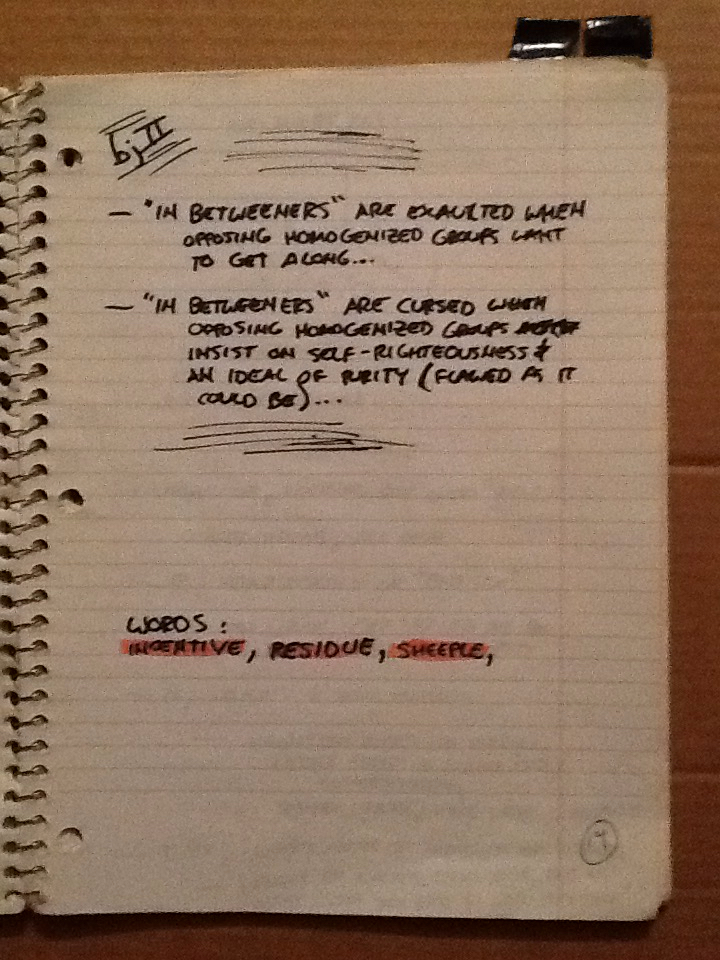 bj II
— "IN BETWEENERS" ARE EXAULTED WHEN
OPPOSING HOMOGENIZED GROUPS WANT
TO GET ALONG...
— "IN BETWEENERS" ARE CURSED WHEN
OPPOSING HOMOGENIZED GROUPS
INSIST ON SELF-RIGHTEOUSNESS &
AN IDEAL OF PURITY (FLAWED AS IT
COULD BE)...
WORDS:
INCENTIVE, RESIDUE, SHEEPLE,